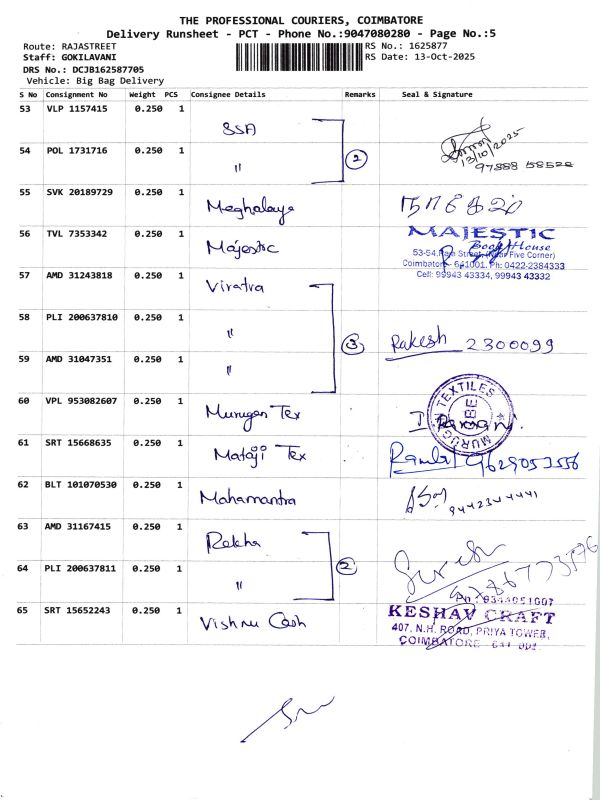 THE PROFESSIONAL COURIERS, COIMBATORE
Delivery Runsheet - PCT - Phone No.:9047080280 - Page No.:5
Route: RAJASTREET
RS No.: 1625877
Staff: GOKILAVANI
RS Date: 13-Oct-2025
DRS No.: DCJB162587705
Vehicle: Big Bag Delivery
S No Consignment No Weight PCS Consignee Details Remarks Seal & Signature
53 VLP 1157415 0.250 1 SSA
13/10/2025
97888 58528
54 POL 1731716 0.250 1 " 2
55 SVK 20189729 0.250 1 Meghalaya
56 TVL 7353342 0.250 1 Majestic
MAJESTIC
Book House
53-54, Raja Street, (Near Five Corner)
Coimbatore - 641001. Ph: 0422-2384333
Cell: 99943 43334, 99943 43332
57 AMD 31243818 0.250 1 Viratra
58 PLI 200637810 0.250 1 " 3 Rakesh 2300099
59 AMD 31047351 0.250 1 "
60 VPL 953082607 0.250 1 Murugan Tex
MURUGAN TEXTILES
CBE
61 SRT 15668635 0.250 1 Mataji Tex 9629053556
62 BLT 101070530 0.250 1 Mahamantra 9442344441
63 AMD 31167415 0.250 1 Rekha
Suresh
64 PLI 200637811 0.250 1 " 2
65 SRT 15652243 0.250 1 Vishnu Cash
KESHAV CRAFT
407, N.H. ROAD, PRIYA TOWER,
COIMBATORE - 641 001.